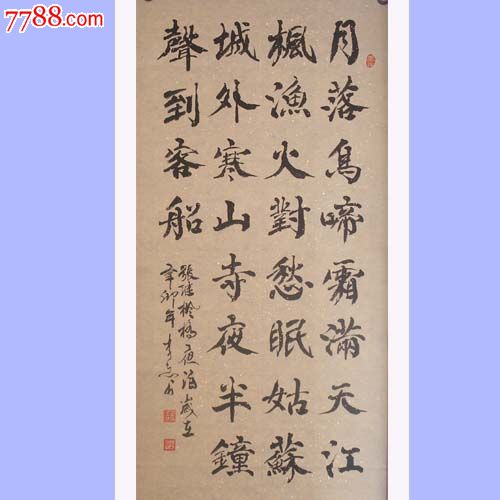 7788.com
月落烏啼霜滿天江
楓漁火對愁眠姑蘇
城外寒山寺夜半鐘
聲到客船
張继楓橋夜泊歲在
辛卯年